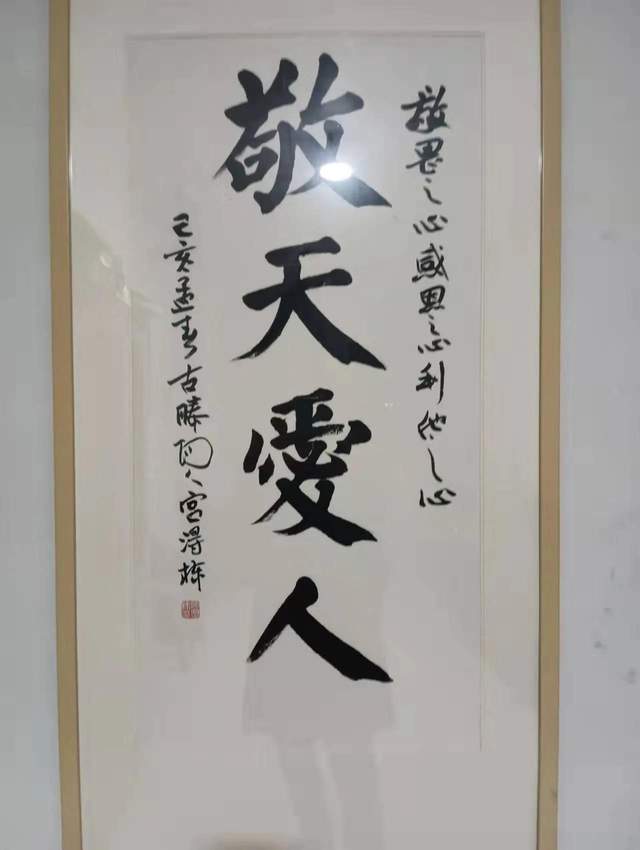 敬畏之心感恩之心利他之心
敬天愛人
己亥孟春古滕閣人宮得栋